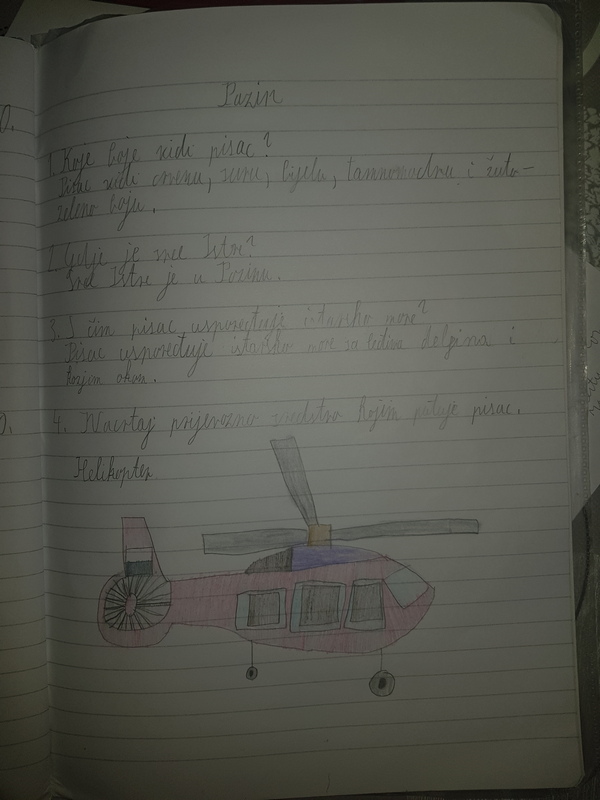 Pazin
1. Koje boje vidi pisac?
Pisac vidi crvenu, sivu, bijelu, tamnomodru i žuto-
zelenu boju.
2. Gdje je srce Istre?
Srce Istre je u Pazinu.
3. S čim pisac uspoređuje istarsko more?
Pisac uspoređuje istarsko more sa leđima delfina i
kozjim okom.
4. Nacrtaj prijevozno sredstvo kojim putuje pisac.
Helikopter